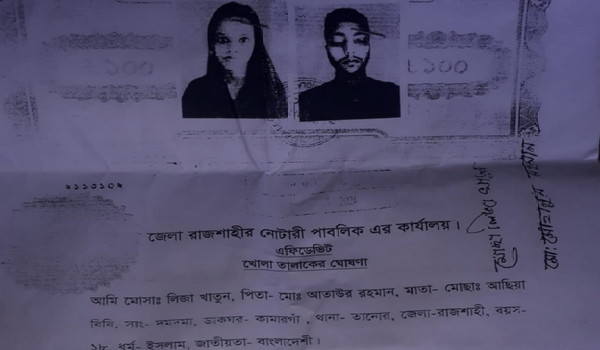 ১০০
১০০
জেলা রাজশাহীর নোটারী পাবলিক এর কার্যালয়।
এফিডেভিট
খোলা তালাকের ঘোষণা
আমি মোসাঃ লিজা খাতুন, পিতা- মোঃ আতাউর রহমান, মাতা- মোছাঃ আছিয়া
বিবি, সাং- দমদমা, ডাকঘর- কামারগাঁ, থানা- তানোর, জেলা-রাজশাহী, বয়স-
১৮, ধর্ম- ইসলাম, জাতীয়তা- বাংলাদেশী।